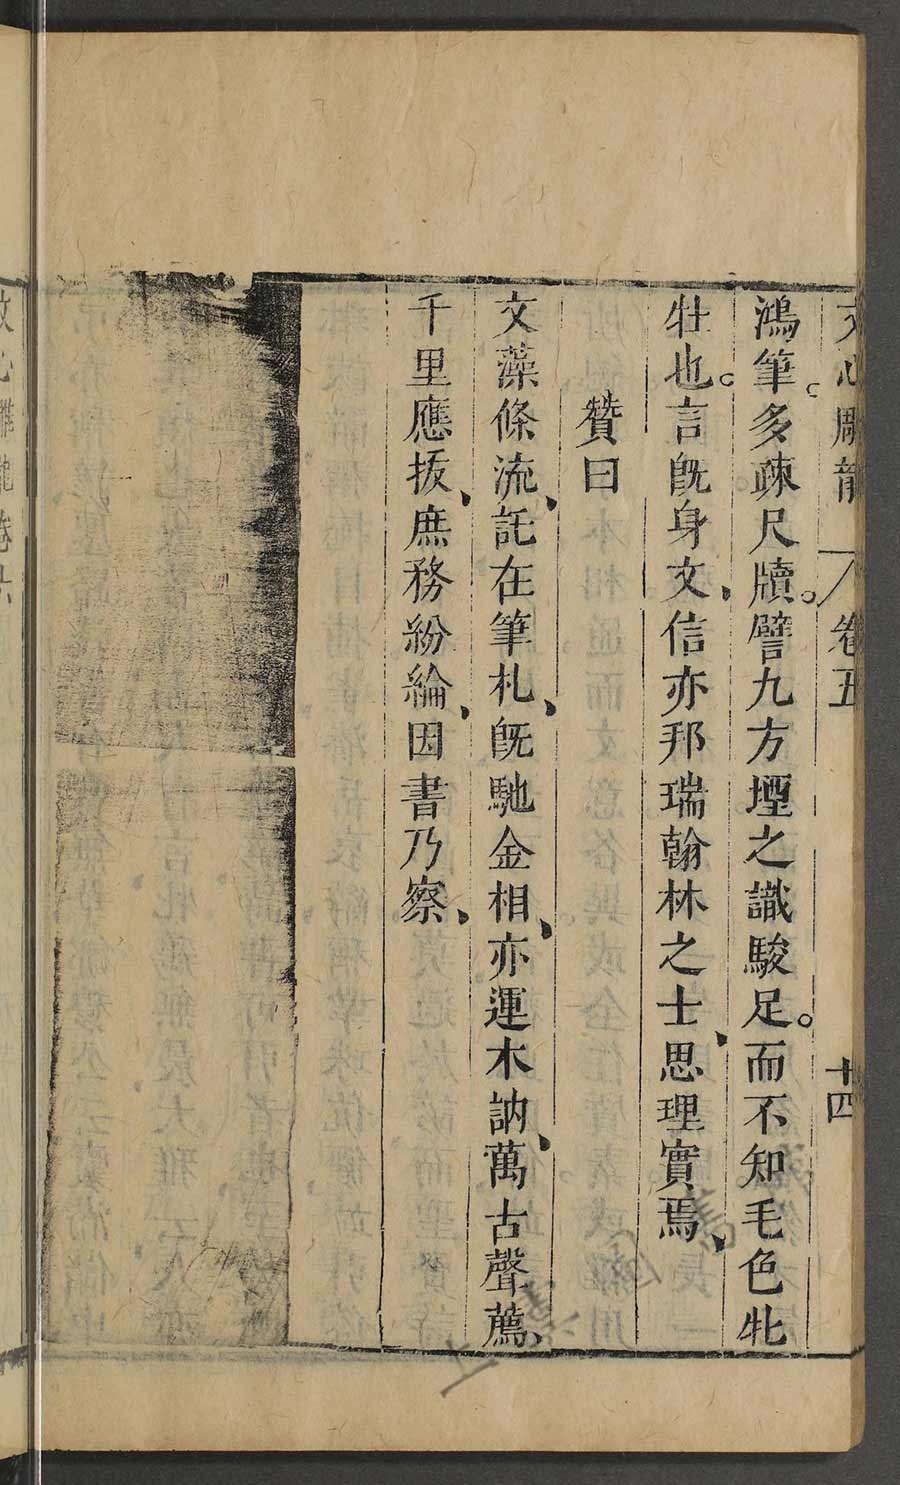 文心雕龍 卷五 十四
鴻筆。多疎尺牘。譬九方堙之識駿足。而不知毛色牝
牡也。言旣身文、信亦邦瑞翰林之士、思理實焉、
贊曰
文藻條流、託在筆札、旣馳金相、亦運木訥、萬古聲薦、
千里應拔、庶務紛綸、因書乃察、